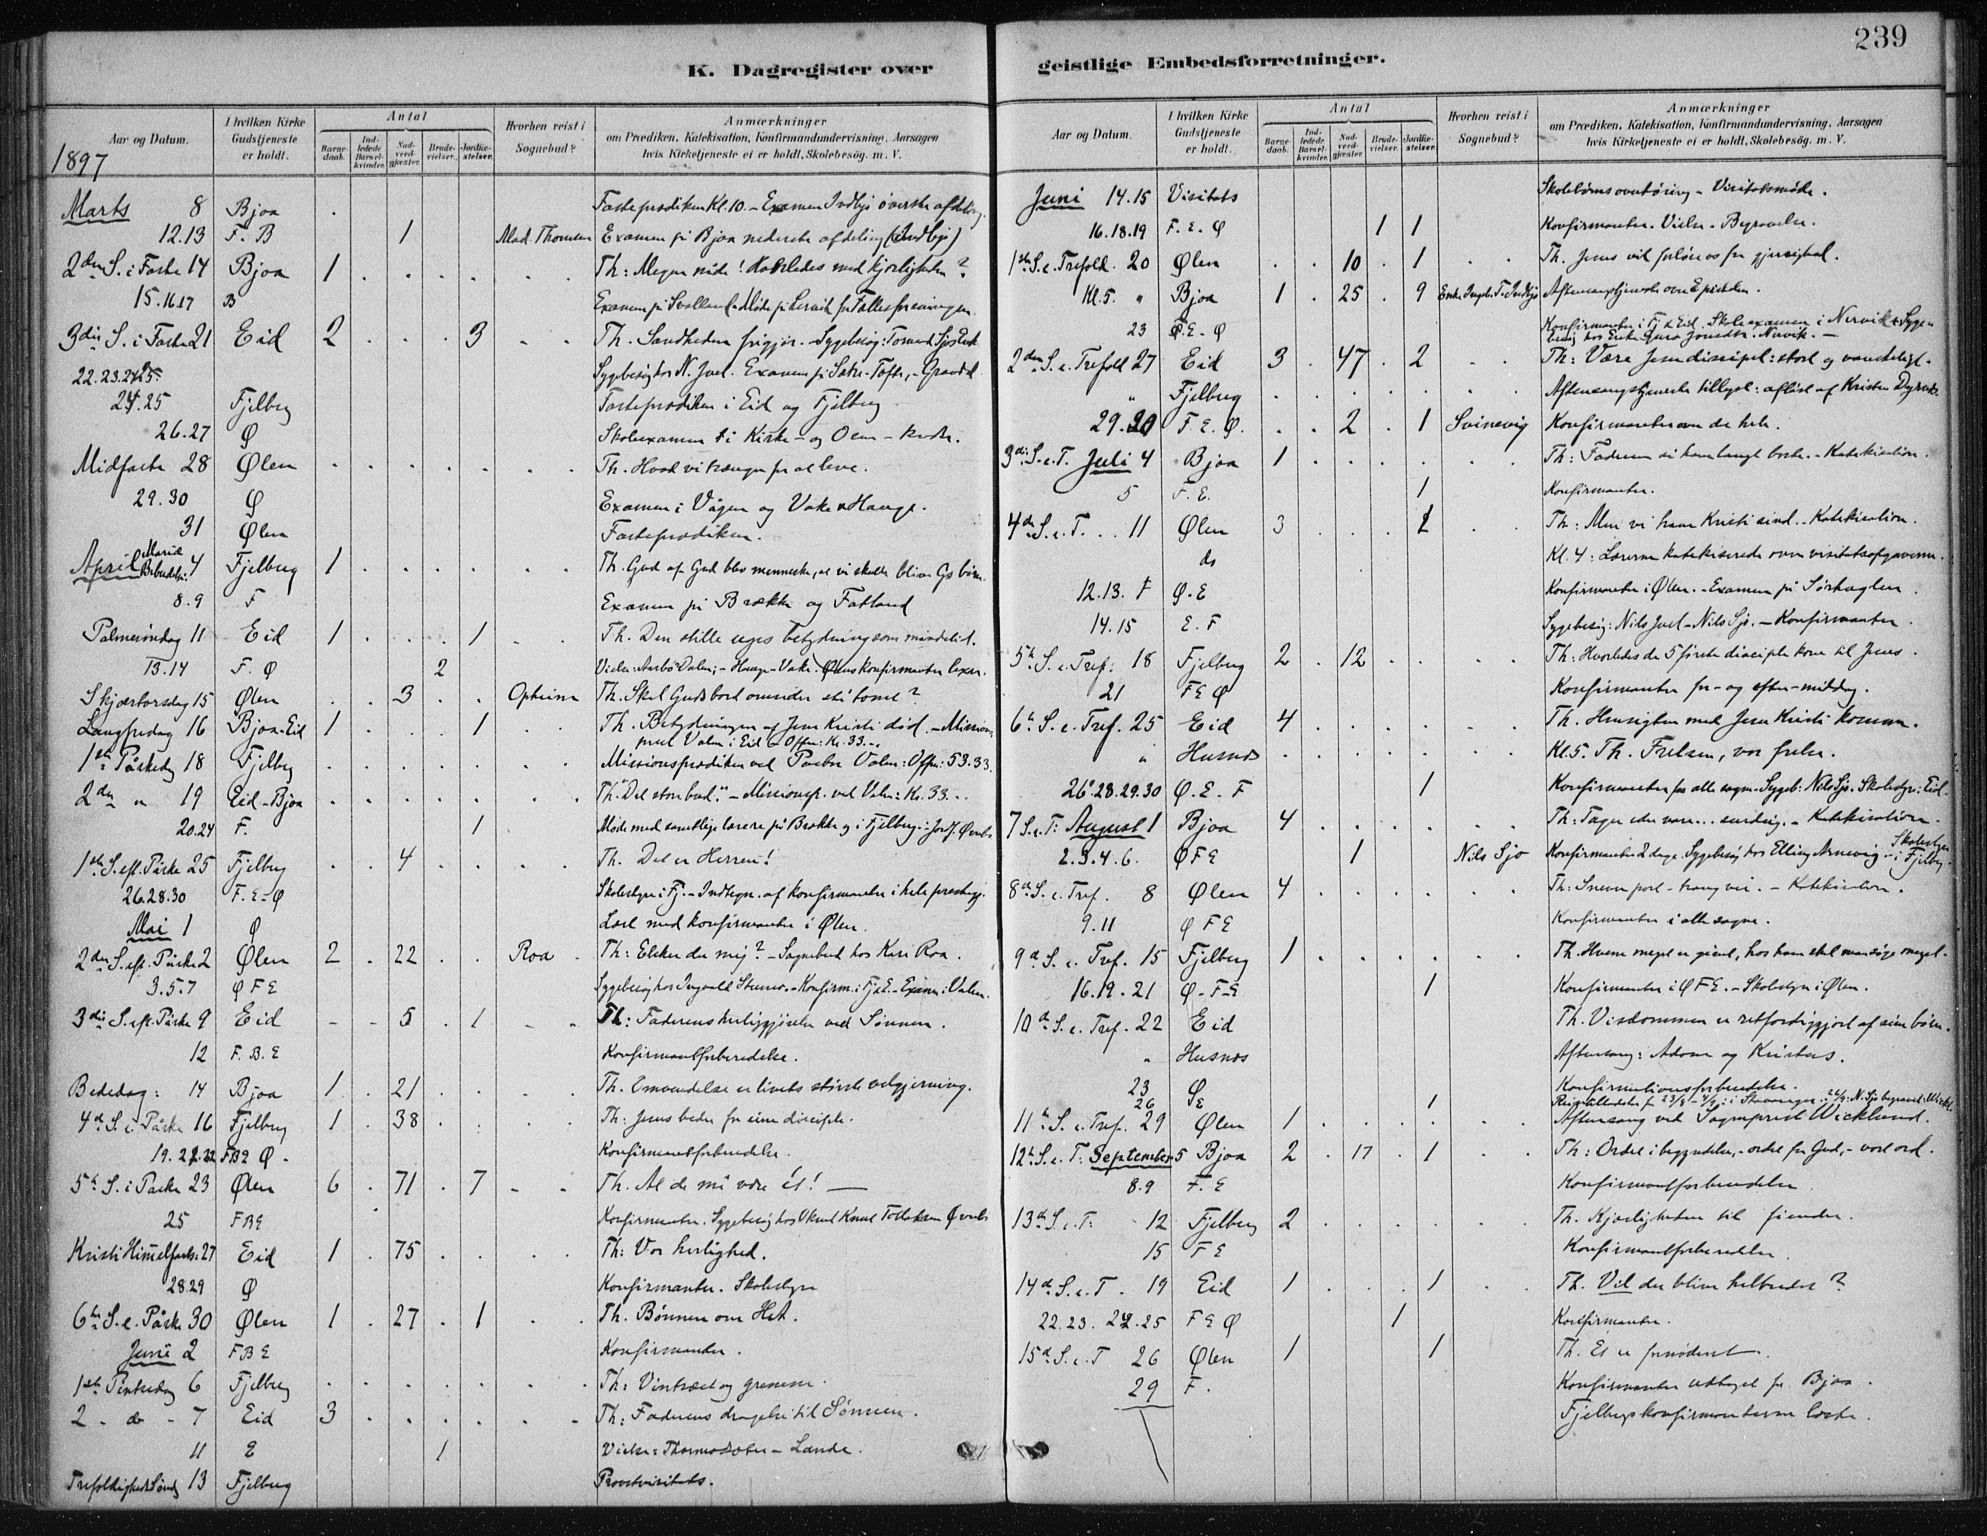 239
K. Dagregister over geistlige Embedsforretninger.
Aar og Datum.
I hvilken Kirke Gudstjeneste er holdt.
Antal
Barnedaab.
Indledede Barselkvinder.
Nadverdgjester
Brudevielser.
Jordfæstelser.
Hvorhen reist i Sognebud?
Anmærkninger
om Prædiken, Katekisation, Konfirmandundervisning, Aarsagen
hvis Kirketjeneste ei er holdt, Skolebesøg. m. V.
1897
Marts 8 Bjoa Fasteprædiken Kl. 10. – Examen Indbjo øverste afdeling.
12.13 F. B 1 Mad. Thomsen Examen på Bjoa nederste afdeling (Indbjo)
2den S. i Faste 14 Bjoa 1 Th: Megen nåde! Hvorledes med kjærligheden?
15.16.17 B Examen på
3die S. i Faste 21 Eid 2 3 Th. Sandheden frigjør. – Sygebesøg:
22.23.24.25 Sygebesøg hos N. Juel. Examen på
24.25 Fjelberg Fasteprædiken i Eid og Fjelberg
26.27 Ø Skoleexamen i Kirke – og Ølen – kreds.
Midfaste 28 Ølen Th. Hvad vi trænger for at leve.
29.30 Ø Examen i Vågen og Vake & Hauge.
31 Ølen Fasteprædiken.
April Mariæ Bebudelse 4 Fjelberg 1 Th. Gud af Gud blev menneske, at vi skulde blive Gs børn.
8.9 F Examen på Brække og Fatland
Palmesøndag 11 Eid 1 1 Th. Den stille uges betydning som mindetid.
13.14 F. Ø 2 Vielse: Aarbø Dalen; – Hauge – Vake. Ølens konfirmanter læser.
Skjærtorsdag 15 Ølen 3 Opheim Th. Skal Guds bord omsider stå tomt?
Langfredag 16 Bjoa – Eid 1 1 Th. Betydningen af Jesu Kristi død. – Missions
præd Valen i Eid – Offer: Kr. 33 –.
1ste Påskedag 18 Fjelberg Missionsprædiken ved Valen: Offer: 53.33.
2den " 19 Eid – Bjoa Th. "Det store bud." – Missionspr. ved Valen: Kr. 33 –.
20.24 F. 1 Møde med samtlige lærere på Brække og i Fjelberg:
1ste S. eft. Påske 25 Fjelberg 4 Th. Det er Herren!
26.28.30 F. E – Ø Skolestyre i Fj. – Indtegn. af konfirmanter i hele prestegj.
Mai 1 Ø Læst med konfirmanter i Ølen.
2den S. eft. Påske 2 Ølen 2 22 Roa Th: Elsker du mig? – Sognebud hos Kari Roa.
3.5.7 Ø F E Sygebesøg hos Ingvald – Konfirm. i Fj & E. – Exam: i Valen.
3die S. eft. Påske 9 Eid 5 1 Th: Faderens herliggjørelse ved Sønnen.
12 F. B. E Konfirmantforberedelse.
Bededag: 14 Bjoa 1 21 Th. Omvendelse er livets største velgjerning.
4de S. e. Påske 16 Fjelberg 1 38 Th: Jesus beder for sine disciple.
19. 21.22 FBE Ø. Konfirmantforberedelse.
5te S. i Påske 23 Ølen 6 71 7 Th. At de må være ét! –
25 FBE Konfirmanter. Sygebesøg hos
Kristi Himmelfarts: 27 Eid 1 75 Th: Vor herlighed.
28.29 Ø Konfirmanter. Skolestyre
6te S. e. Påske 30 Ølen 1 27 1 Th. Bønnen om Het.
Juni 2 FBE Konfirmander.
1ste Pintsedag 6 Fjelberg Th: Vintræet og grenene.
2 – de – 7 Eid 3 Th: Faderens dragelse til Sønnen.
11 E 1 Vielse: Thormodsæter – Lande.
Trefoldigheds Søndag 13 Fjelberg Provstevisitats.
Aar og Datum.
I hvilken Kirke Gudstjeneste er holdt.
Antal
Barnedaab.
Indledede Barselkvinder.
Nadverdgjester
Brudevielser.
Jordfæstelser.
Hvorhen reist i Sognebud?
Anmærkninger
om Prædiken, Katekisation, Konfirmandundervisning, Aarsagen
hvis Kirketjeneste ei er holdt, Skolebesøg. m. V.
Juni 14.15 Visitats Skolebørns overhøring – Visitatsmøte.
16.18.19 F. E. Ø 1 1 Konfirmanter. Vielse – Begravelse.
1ste S. e. Trefold. 20 Ølen 10 1 Th. Jesus vil forløse os fra gjerrighed.
Kl. 5. " Bjoa 1 25 9 Enke Indbjo Aftensangstjeneste over Epistelen.
23 F. E – Ø Konfirmanter i Fj & Eid. Skoleexamen i Nervik & Syge-
besøg hos Enke Nervik. –
2den S. e. Trefold 27 Eid 3 47 2 Th: Være Jesu discipel: stort og vanskeligt.
" Fjelberg Aftensangstjeneste tillyst: aflöst af Kristen
29.30 F. E. Ø. 2 1 Svinevig Konfirmanter over de hele.
3die S. e. T. Juli 4 Bjoa 1 Th: Faderen så ham langt borte. – Katekisation.
5 F. E. 1 Konfirmanter.
4de S. e. T. 11 Ølen 3 1 Th: Men vi have Kristi sind. – Katekisation.
ds Kl. 4: Lærerne katekiserede over visitatsopgaverne.
12.13. Ø. E Konfirmanter i Ølen. – Examen på Sørhaglen.
14.15 E. F Sygebesøg: Nils Juel – Nils Sjo. – Konfirmanter.
5te S. e. Tref: 18 Fjelberg 2 12 Th: Hvorledes de 5 første disciple kom til Jesus.
21 F E Ø Konfirmanter for- og efter-middag.
6te S. e. Tref. 25 Eid 4 Th. Hensigten med Jesu Kristi komme.
" Husnes Kl. 5. Th. Frelsen, vor frelse.
26.28.29.30 Ø. E. F 1 Konfirmanter fra alle sogne. Sygeb: Nils Sjo. Skolestyr: Eid.
7 S. e. T: August 1 Bjoa 4 Th: Tager eder vare... surdeig. – Katekisation.
2.3.4.6. Ø F E 1 Nils Sjo Konfirmanter 2 dage. Sygebesøg hos Elling Arnevig – Skolestyre i Fjelberg
8de S. e. Tref. 8 Ølen 4 Th: Snever port – trang vei. – Katekisation.
9.11 Ø F E Konfirmanter i alle sogne.
9de S. e. Tref. 15 Fjelberg 1 Th. Hvem meget er givet, hos ham skal man søge meget.
16.19.21 Ø – F – E 1 Konfirmanter i Ø F E. – Skolestyre i Ølen.
10de S. e. Tref. 22 Eid Th. Visdommen er retfærdiggjort af sine børn.
" Husnes Aftensang: Adam og Kristus.
23 Ø Konfirmationsforberedelse.
26 E 1 Reisetilladelse fra 23/8 – 4/9: i Stavanger.
11te S. e. Tref. 29 Ølen 1 Aftensang ved Sogneprest Wicklund.
12te S. e. T: September 5 Bjoa 2 17 1 Th: Ordet i begyndelsen, – ordet fra Gud, – vort ord.
8.9 F. E Konfirmantforberedelse
13de S. e. T: 12 Fjelberg 2 Th. Kjærligheden til fiender.
15 F E Konfirmantforberedelse.
14de S. e. T. 19 Eid 1 1 Th. Vil du blive helbredet?
22.23. 24.25 F E Ø 1 Konfirmanter.
15de S. e. T 26 Ølen 1 1 Th. Et er fornødent.
29 F. Konfirmanter udtaget fra Bjoa.
Fjelbergs konfirmanterne læste.